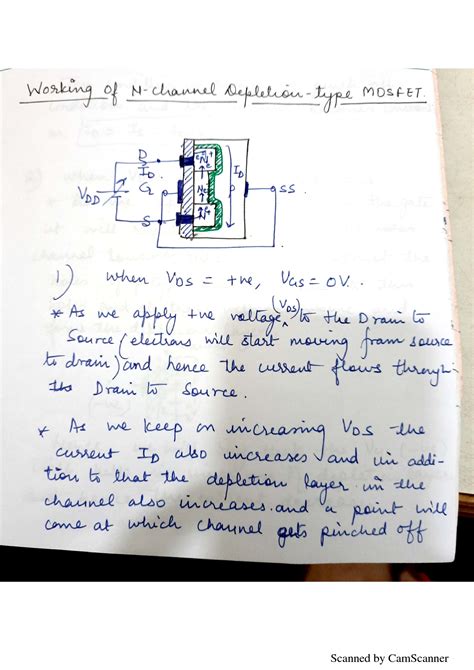 Working of N-channel Depletion-type MOSFET.
D
ID
G
VDD
S
N+
N
N+
ID
P
SS
1) when VDS = +ve, VGS = 0V.
* As we apply +ve voltage (VDS) to the Drain to
Source (electrons will start moving from source
to drain) and hence the current flows through
Drain to Source.
* As we keep on increasing VDS the
current ID also increases and in addi-
tion to that the depletion layer in the
channel also increases and a point will
come at which channel gets pinched off
Scanned by CamScanner